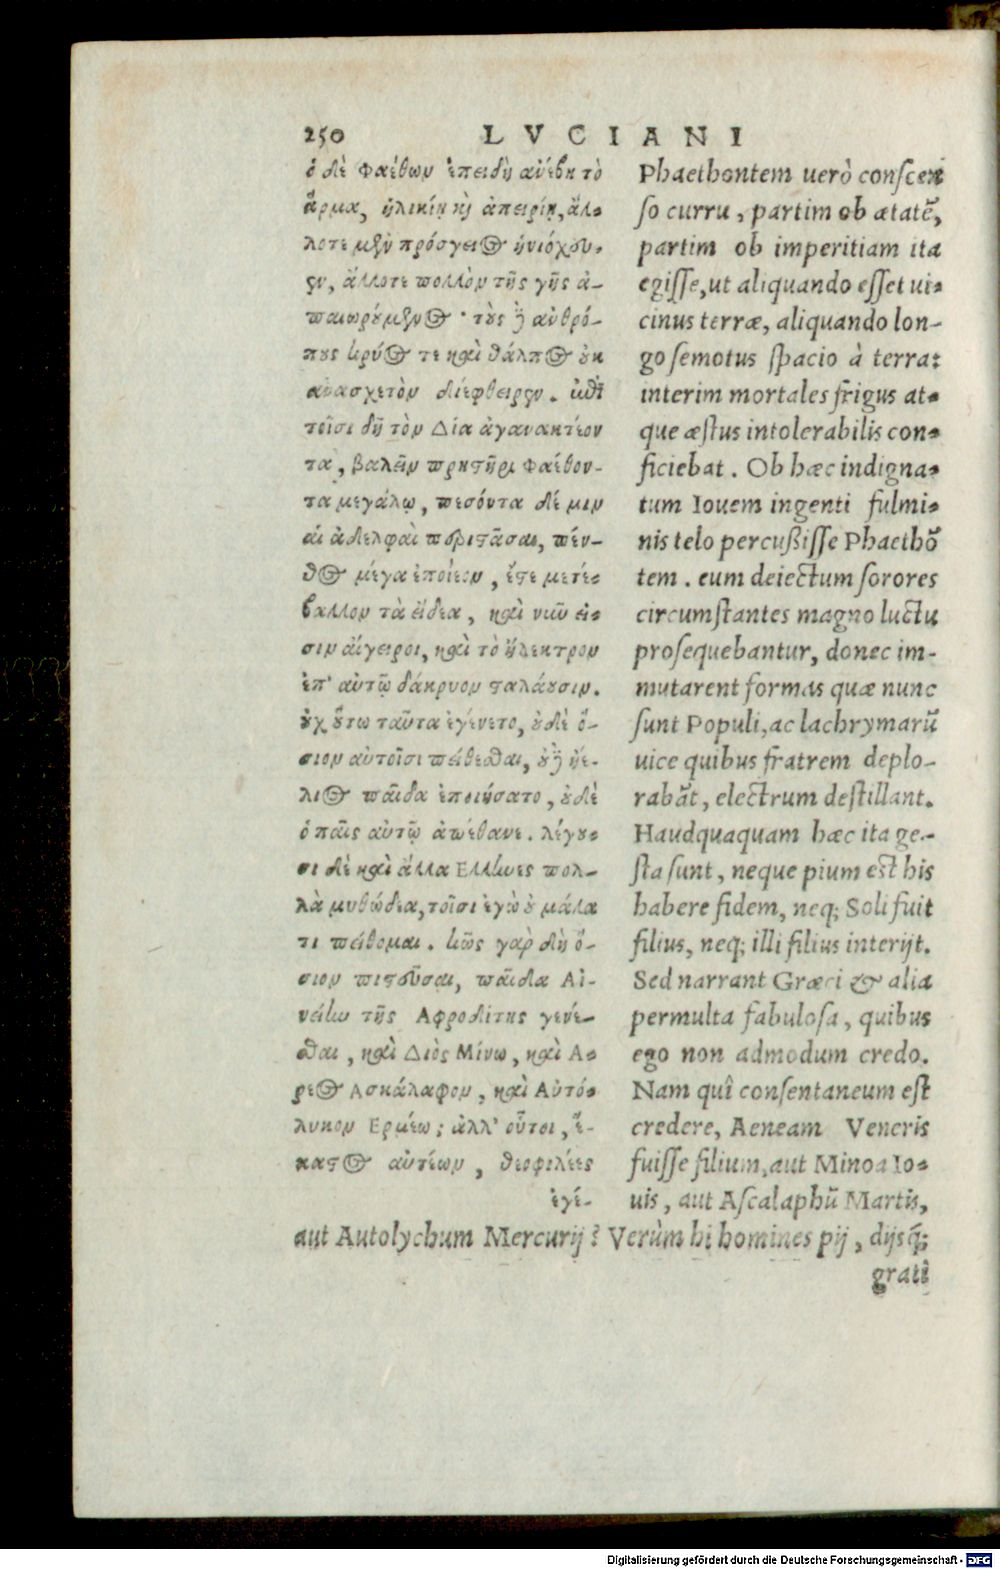 250 LVCIANI
ὁ δὲ Φαέθων ἐπειδὴ ἀνέβη τὸ
ἅρμα, ἡλικίῃ κὶ ἀπειρίῃ, ἄλ-
λοτε μὲν πρόσγειος ἡνιόχευ-
εν, ἄλλοτε πολλὸν τῆς γῆς ἀ-
παιωρούμενος· τοὺς δὲ ἀνθρώ-
πους κρύος τε καὶ θάλπος οὐκ
ἀνασχετὸν διέφθειρεν. ἐπὶ
τοῖσι δὴ τὸν Δία ἀγανακτέον
τα, βαλεῖν πρηστῆρι Φαέθον-
τα μεγάλῳ, πεσόντα δέ μιν
αἱ ἀδελφαὶ περιστᾶσαι, πέν-
θος μέγα ἐποίεον, ἔστε μετέ-
βαλλον τὰ εἴδεα, καὶ νῦν εἰ-
σιν αἴγειροι, καὶ τὸ ἤλεκτρον
ἐπ' αὐτῷ δάκρυον σταλάουσιν.
οὐχ οὕτω ταῦτα ἐγένετο, οὐδὲ ὅ-
σιον αὐτοῖσι πείθεσθαι, οὐδὲ ἠέ-
λιος παῖδα ἐποιήσατο, οὐδὲ
ὁ παῖς αὐτῷ ἀπέθανε. λέγου-
σι δὲ καὶ ἄλλα Ελληνες πολ-
λὰ μυθώδεα, τοῖσι ἐγὼ οὐ μάλα
τι πείθομαι. κῶς γὰρ δὴ ὅ-
σιον πιστεῦσαι, παῖδα Αἰ-
νείην τῆς Αφροδίτης γενέ-
σθαι, καὶ Διὸς Μίνω, καὶ Α-
ρεος Ασκάλαφον, καὶ Αὐτό-
λυκον Ερμέω; ἀλλ' οὗτοι, ἕ-
καστος αὐτέων, θεοφιλέες
ἐγέ-
Phaethontem uerò conscen
so curru, partim ob ætatẽ,
partim ob imperitiam ita
egisse, ut aliquando esset ui-
cinus terræ, aliquando lon-
go semotus spacio à terra:
interim mortales frigus at-
que æstus intolerabilis con-
ficiebat. Ob hæc indigna-
tum Iouem ingenti fulmi-
nis telo percußisse Phaethõ
tem. eum deiectum sorores
circumstantes magno luctu
prosequebantur, donec im-
mutarent formas quæ nunc
sunt Populi, ac lachrymarũ
uice quibus fratrem deplo-
rabãt, electrum destillant.
Haudquaquam hæc ita ge-
sta sunt, neque pium est his
habere fidem, neq; Soli fuit
filius, neq; illi filius interijt.
Sed narrant Græci & alia
permulta fabulosa, quibus
ego non admodum credo.
Nam quî consentaneum est
credere, Aeneam Veneris
fuisse filium, aut Minoa Io-
uis, aut Ascalaphũ Martis,
aut Autolychum Mercurij? Verùm hi homines pij, dijsq́;
grati
Digitalisierung gefördert durch die Deutsche Forschungsgemeinschaft - DFG